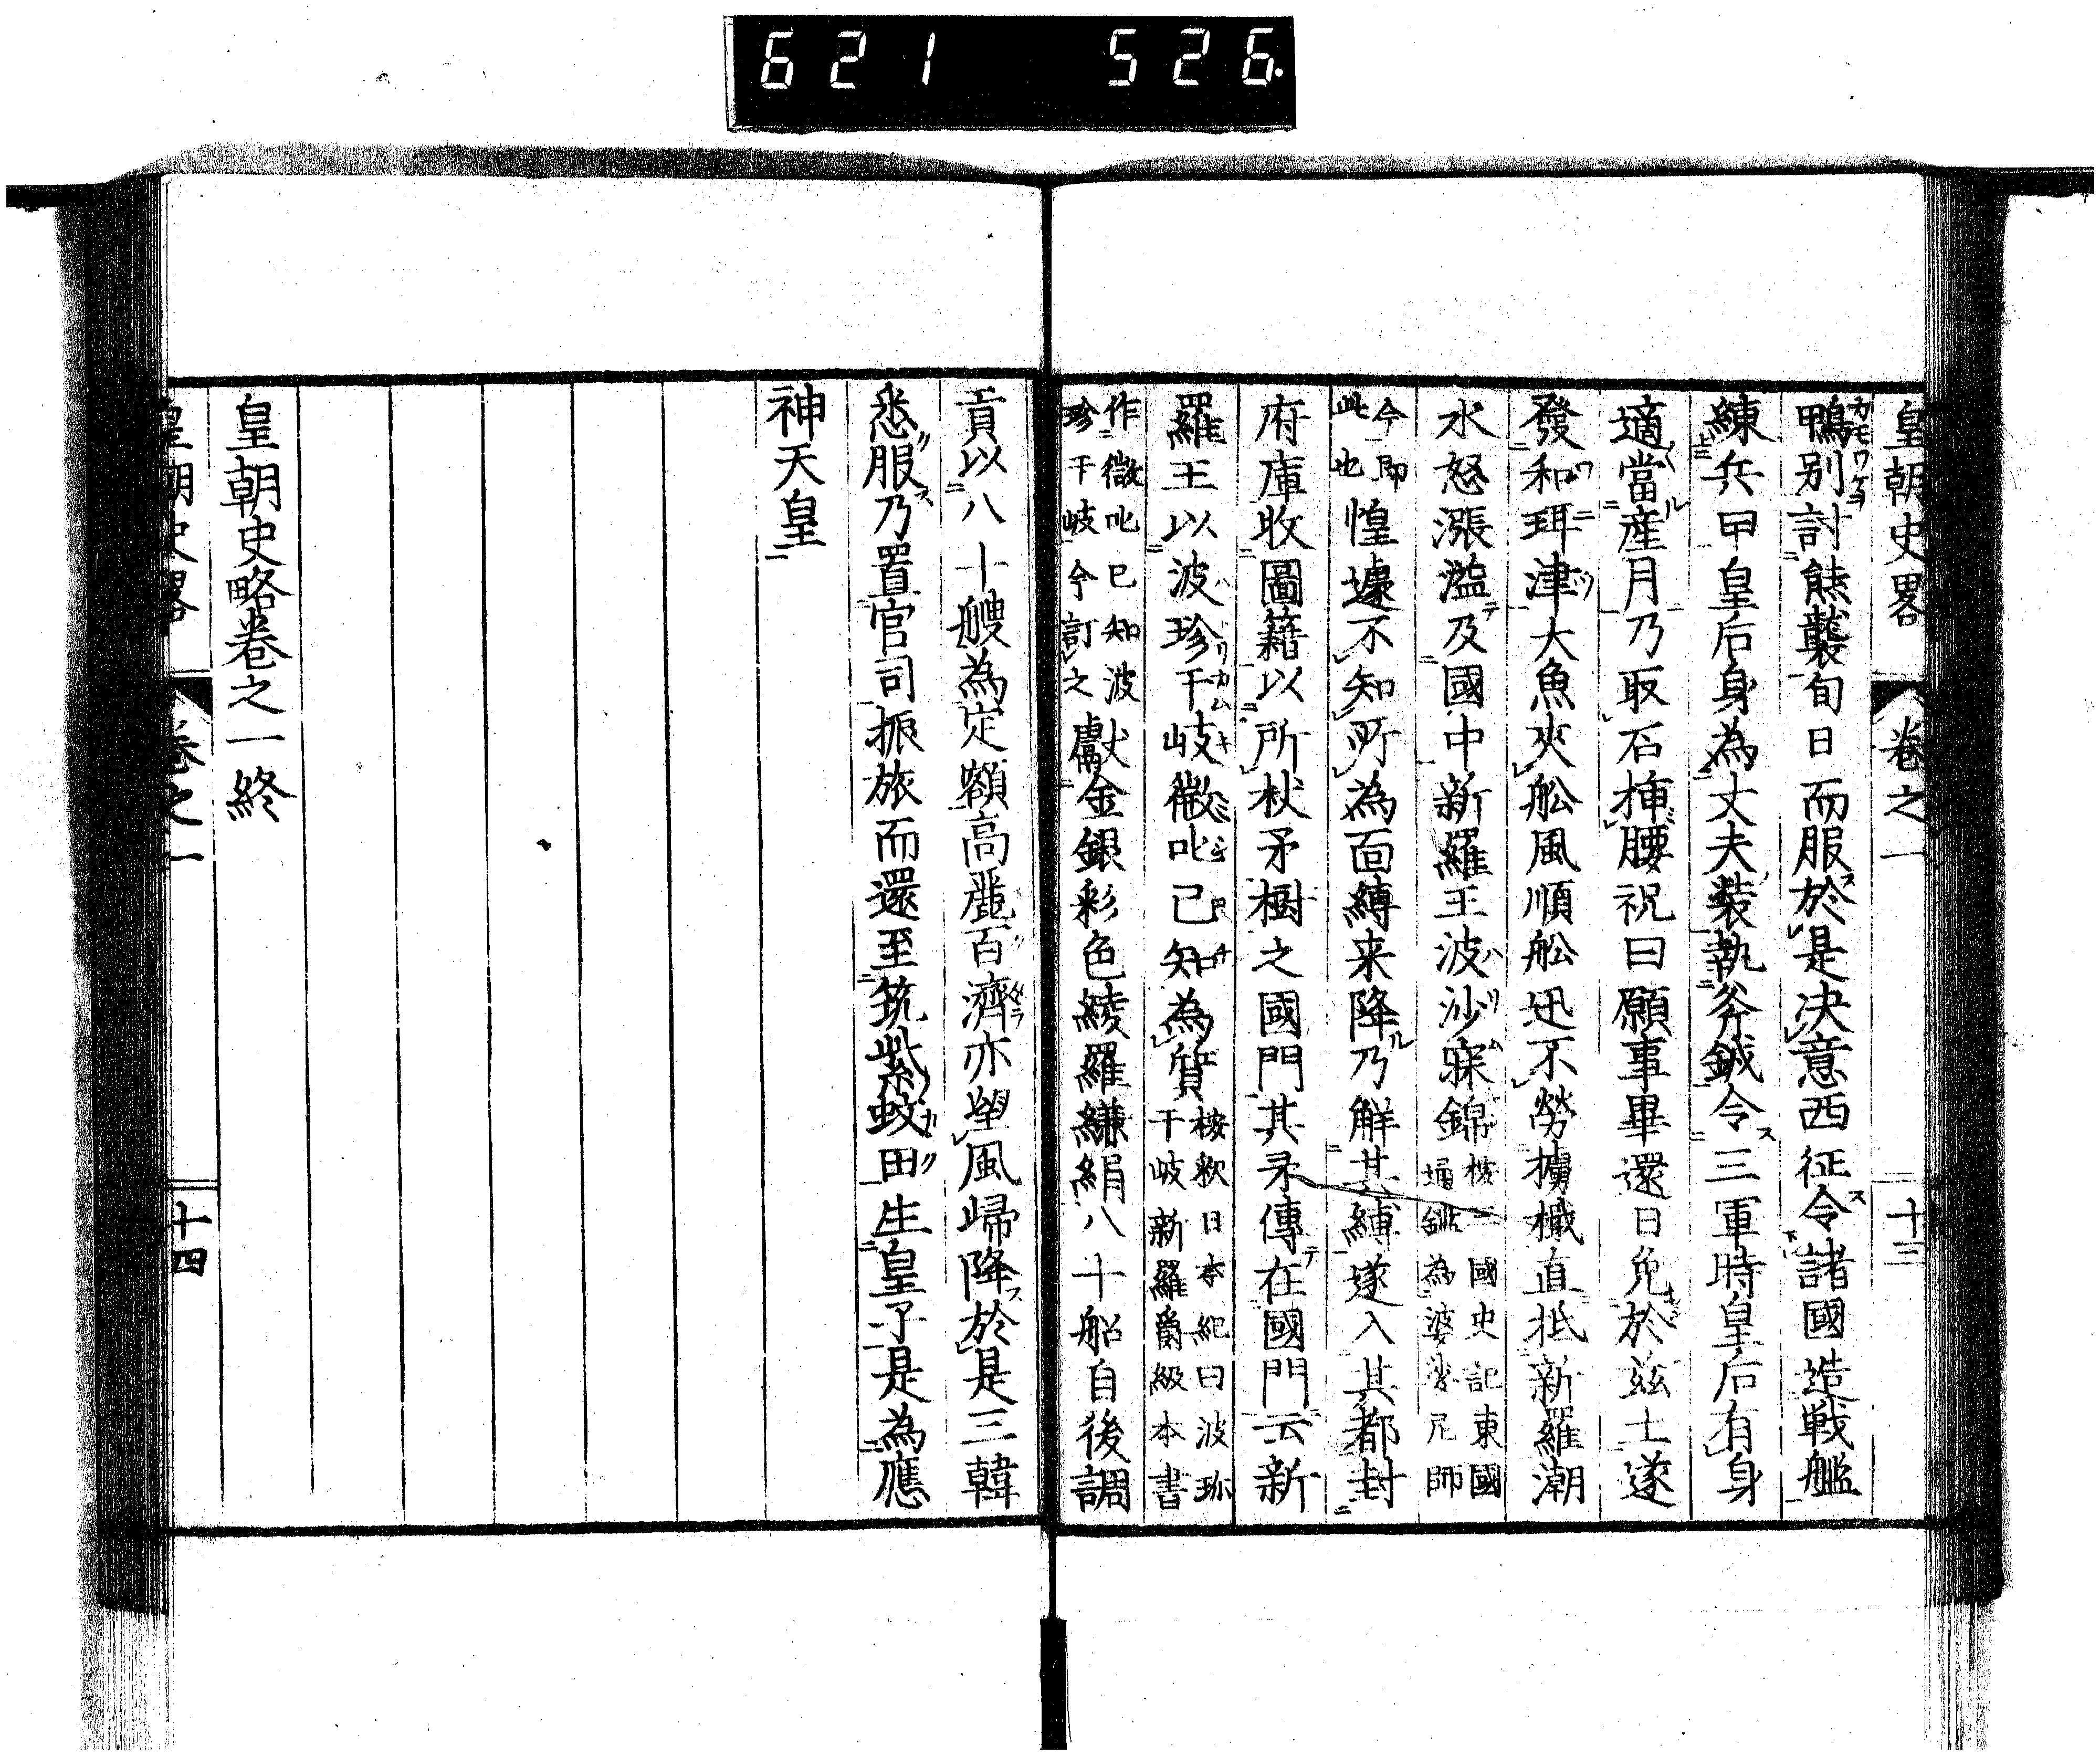 621 526.
皇朝史畧 卷之一 十三
鴨別討熊襲旬日而服於是决意西征令諸國造戰艦
練兵甲皇后身為丈夫裝執斧鉞令三軍時皇后有身
適當産月乃取石挿腰祝曰願事畢還日免於兹土遂
發和珥津大魚夾舩風順舩迅不勞櫓檝直抵新羅潮
水怒漲溢及國中新羅王波沙寐錦
國史記東國
為婆娑尼師
今即
此也
惶遽不知所為面縛来降乃解其縛遂入其都封
府庫收圖籍以所杖矛樹之國門其矛傳在國門云新
羅王以波珍干岐微叱己知為質
按釈日本紀曰波珎
干岐新羅爵級本書
作微叱己知波
珍干岐今訂之
獻金銀彩色綾羅縑絹八十船自後調
貢以八十艘為定額高麗百濟亦望風歸降於是三韓
悉服乃置官司振旅而還至筑紫蚊田生皇子是為應
神天皇
皇朝史略卷之一終
皇朝史畧 卷之一 十四